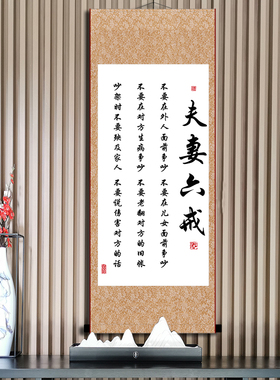 夫妻六戒
不要在外人面前争吵 不要在儿女面前争吵
不要在对方生病争吵 不要老翻对方的旧账
吵架时不要殃及家人 不要说伤害对方的话